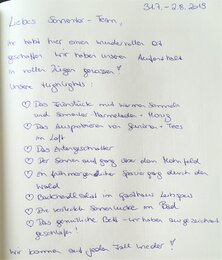 31.7. - 2.8.2013
Liebes Sonnentor-Team,
ihr habt hier einen wundervollen Ort
geschaffen. Wir haben unseren Aufenthalt
in vollen Zügen genossen!
Unsere Highlights:
♡ Das Frühstück mit warmen Semmeln
und Sonnentor-Marmeladen + Honig
♡ Das Ausprobieren von Tees
im Loft
♡ Das Entengeschnatter
♡ Der Sonnenaufgang über dem Mohnfeld
♡ Ein frühmorgendlicher Spaziergang durch den
Wald
♡ Backhendlsalat im Gasthaus
♡ Die verlockte Sonnenlucke im Bad
♡ Das gemütliche Bett - wir haben ausgezeichnet
geschlafen!
Wir kommen auf jeden Fall wieder!